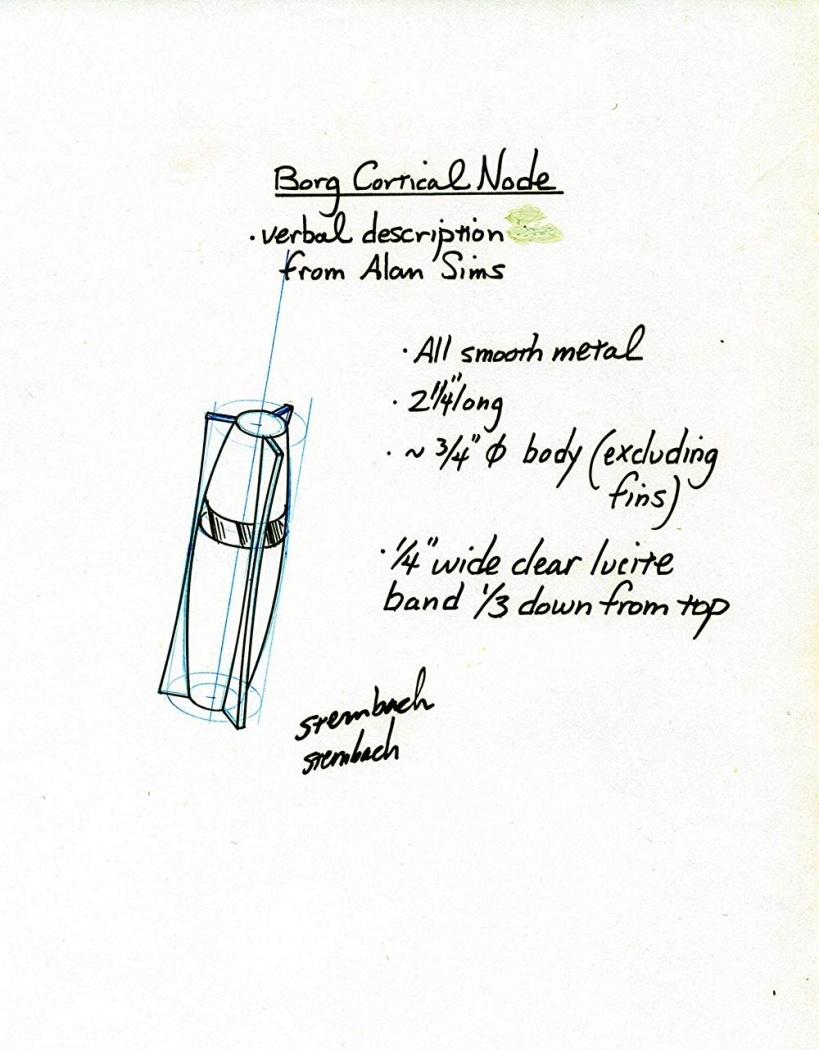 Borg Cortical Node
· verbal description
from Alan Sims
· All smooth metal
· 2 1/4" long
· ~ 3/4" ϕ body (excluding
fins)
· 1/4" wide clear lucite
band 1/3 down from top
sternbach
sternbach